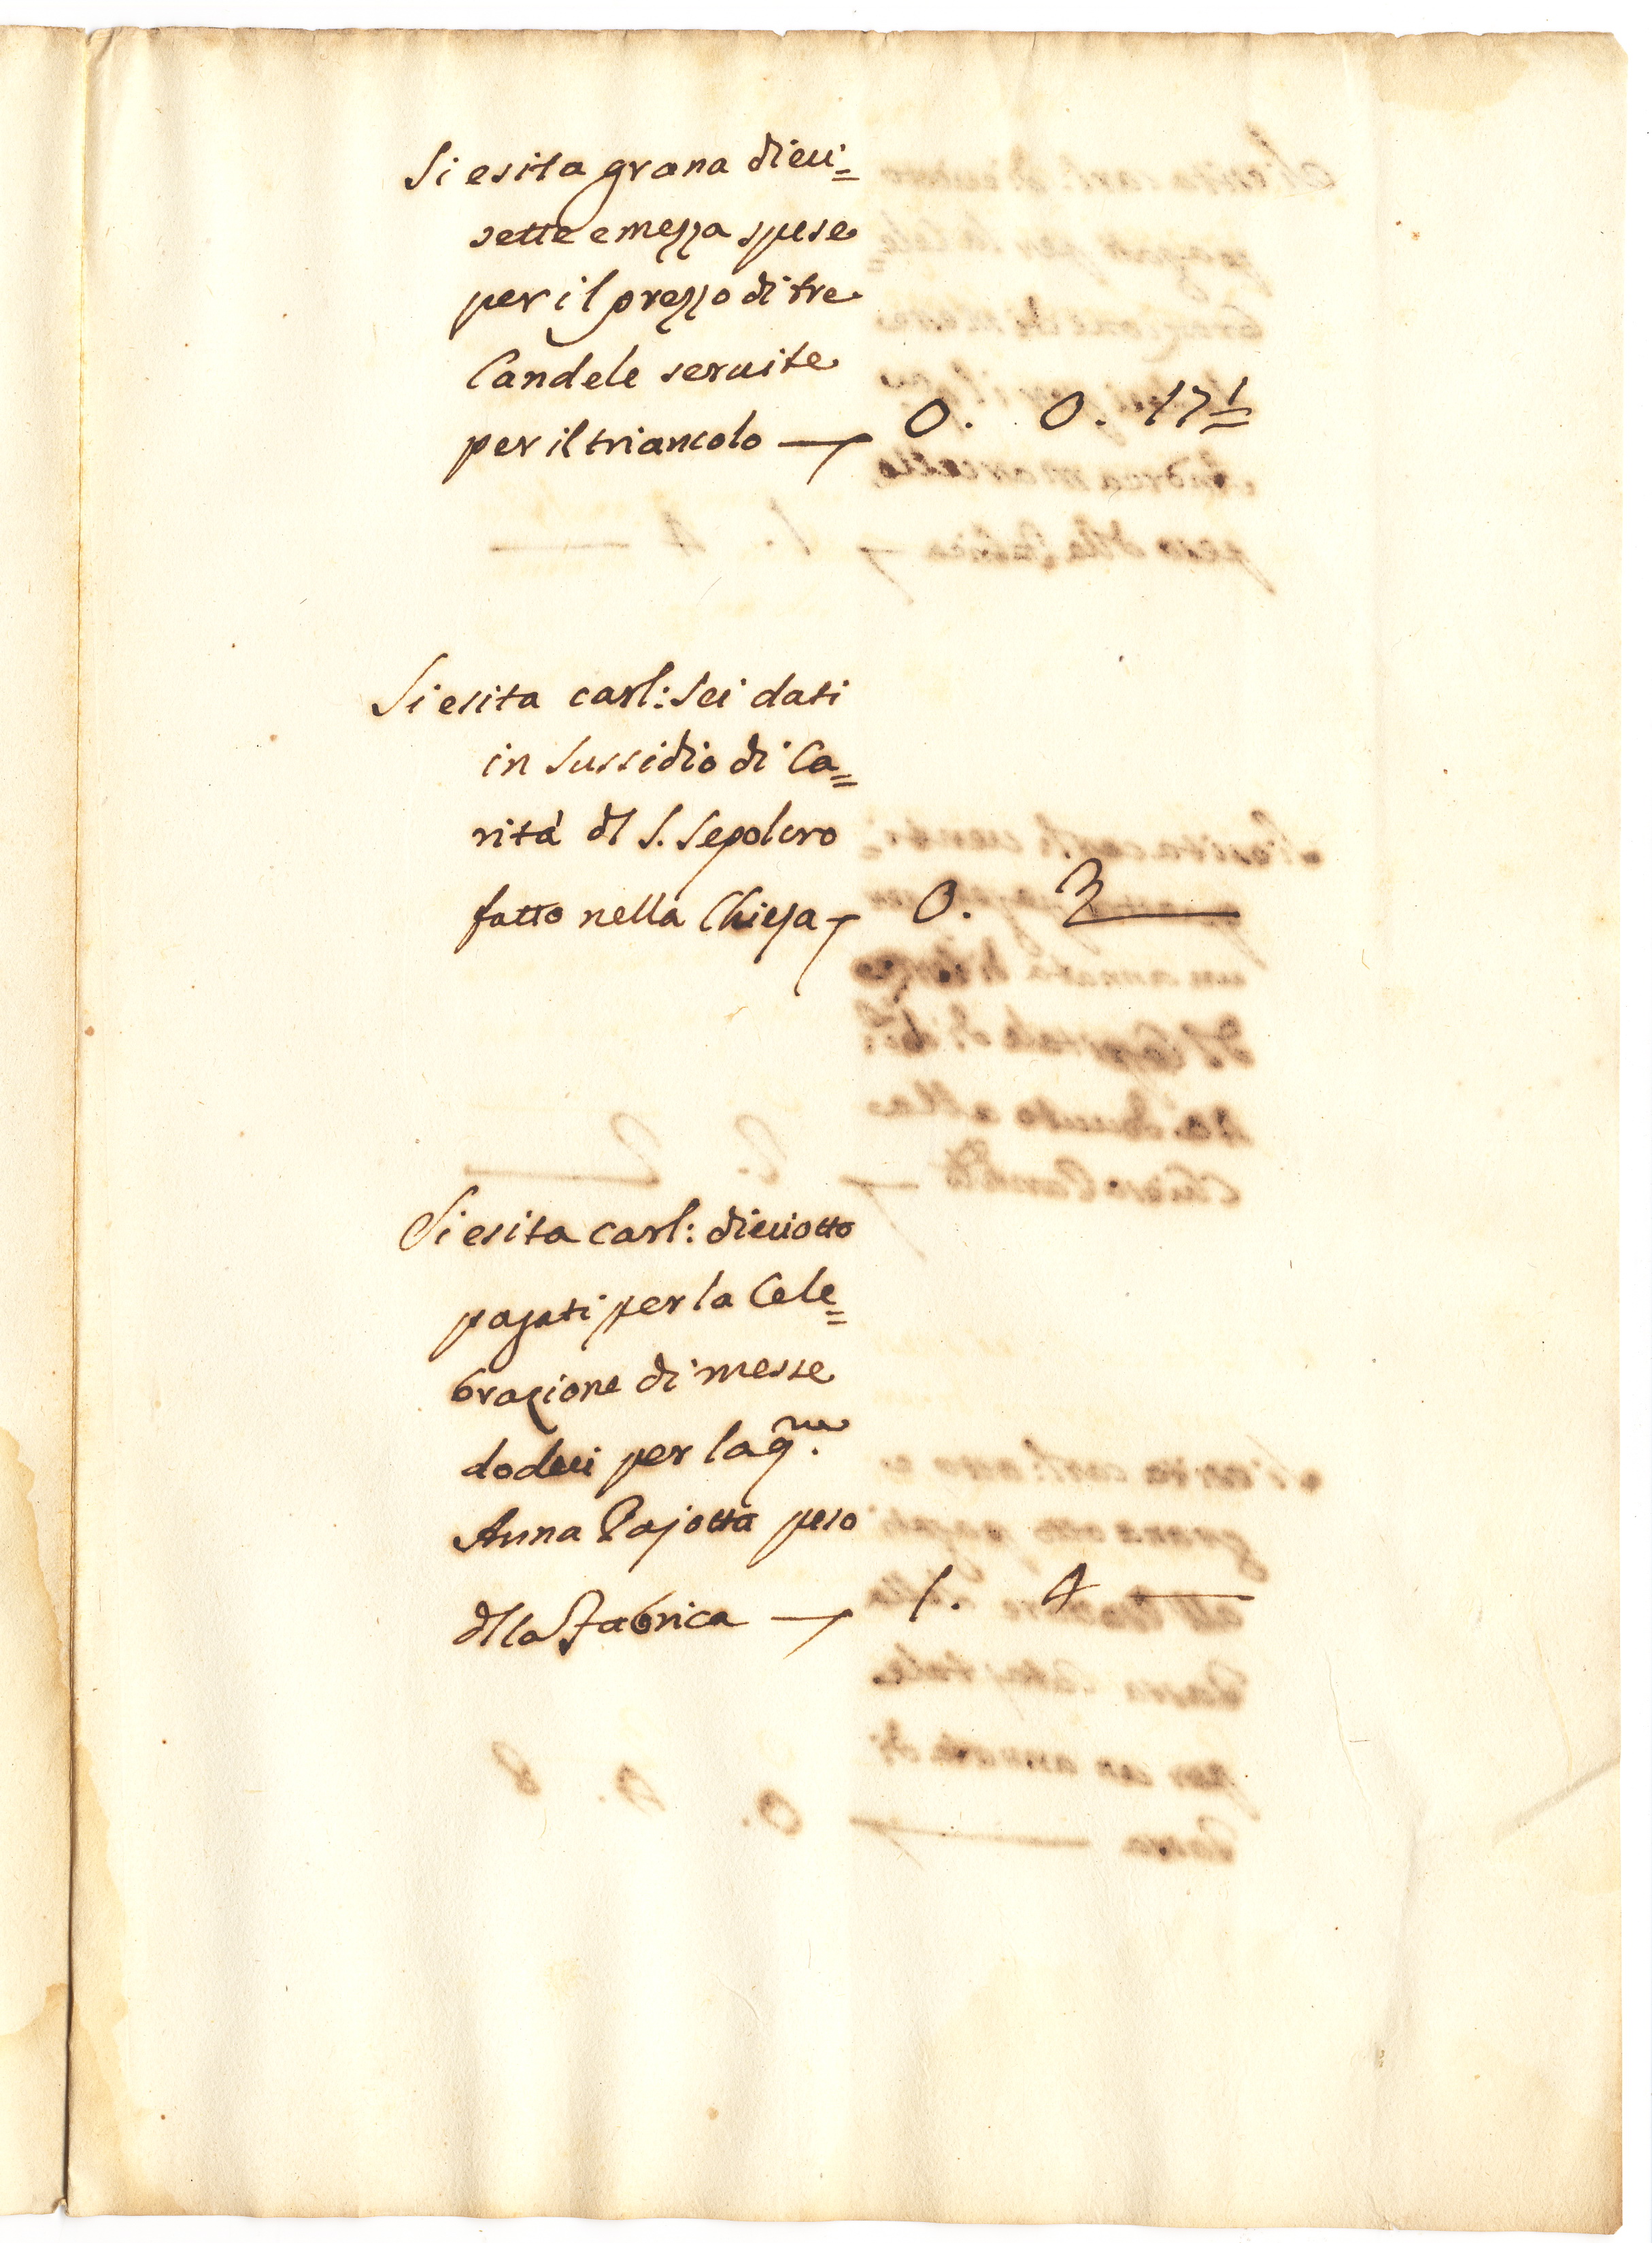 Si esita grana dieci=
sette e mezza spese
per il prezzo di tre
Candele seruite
per il triancolo — 0. 0. 17 1/2
Si esita carl: sei dati
in sussidio di Ca=
rità dl S. Sepolcro
fatto nella Chiesa 0. 3 —
Si esita carl: dieciotto
pagati per la Cele=
brazione di messe
dodeci per la q.m
Anna Pajotta peso
dlla Fabrica — 1. 4 —